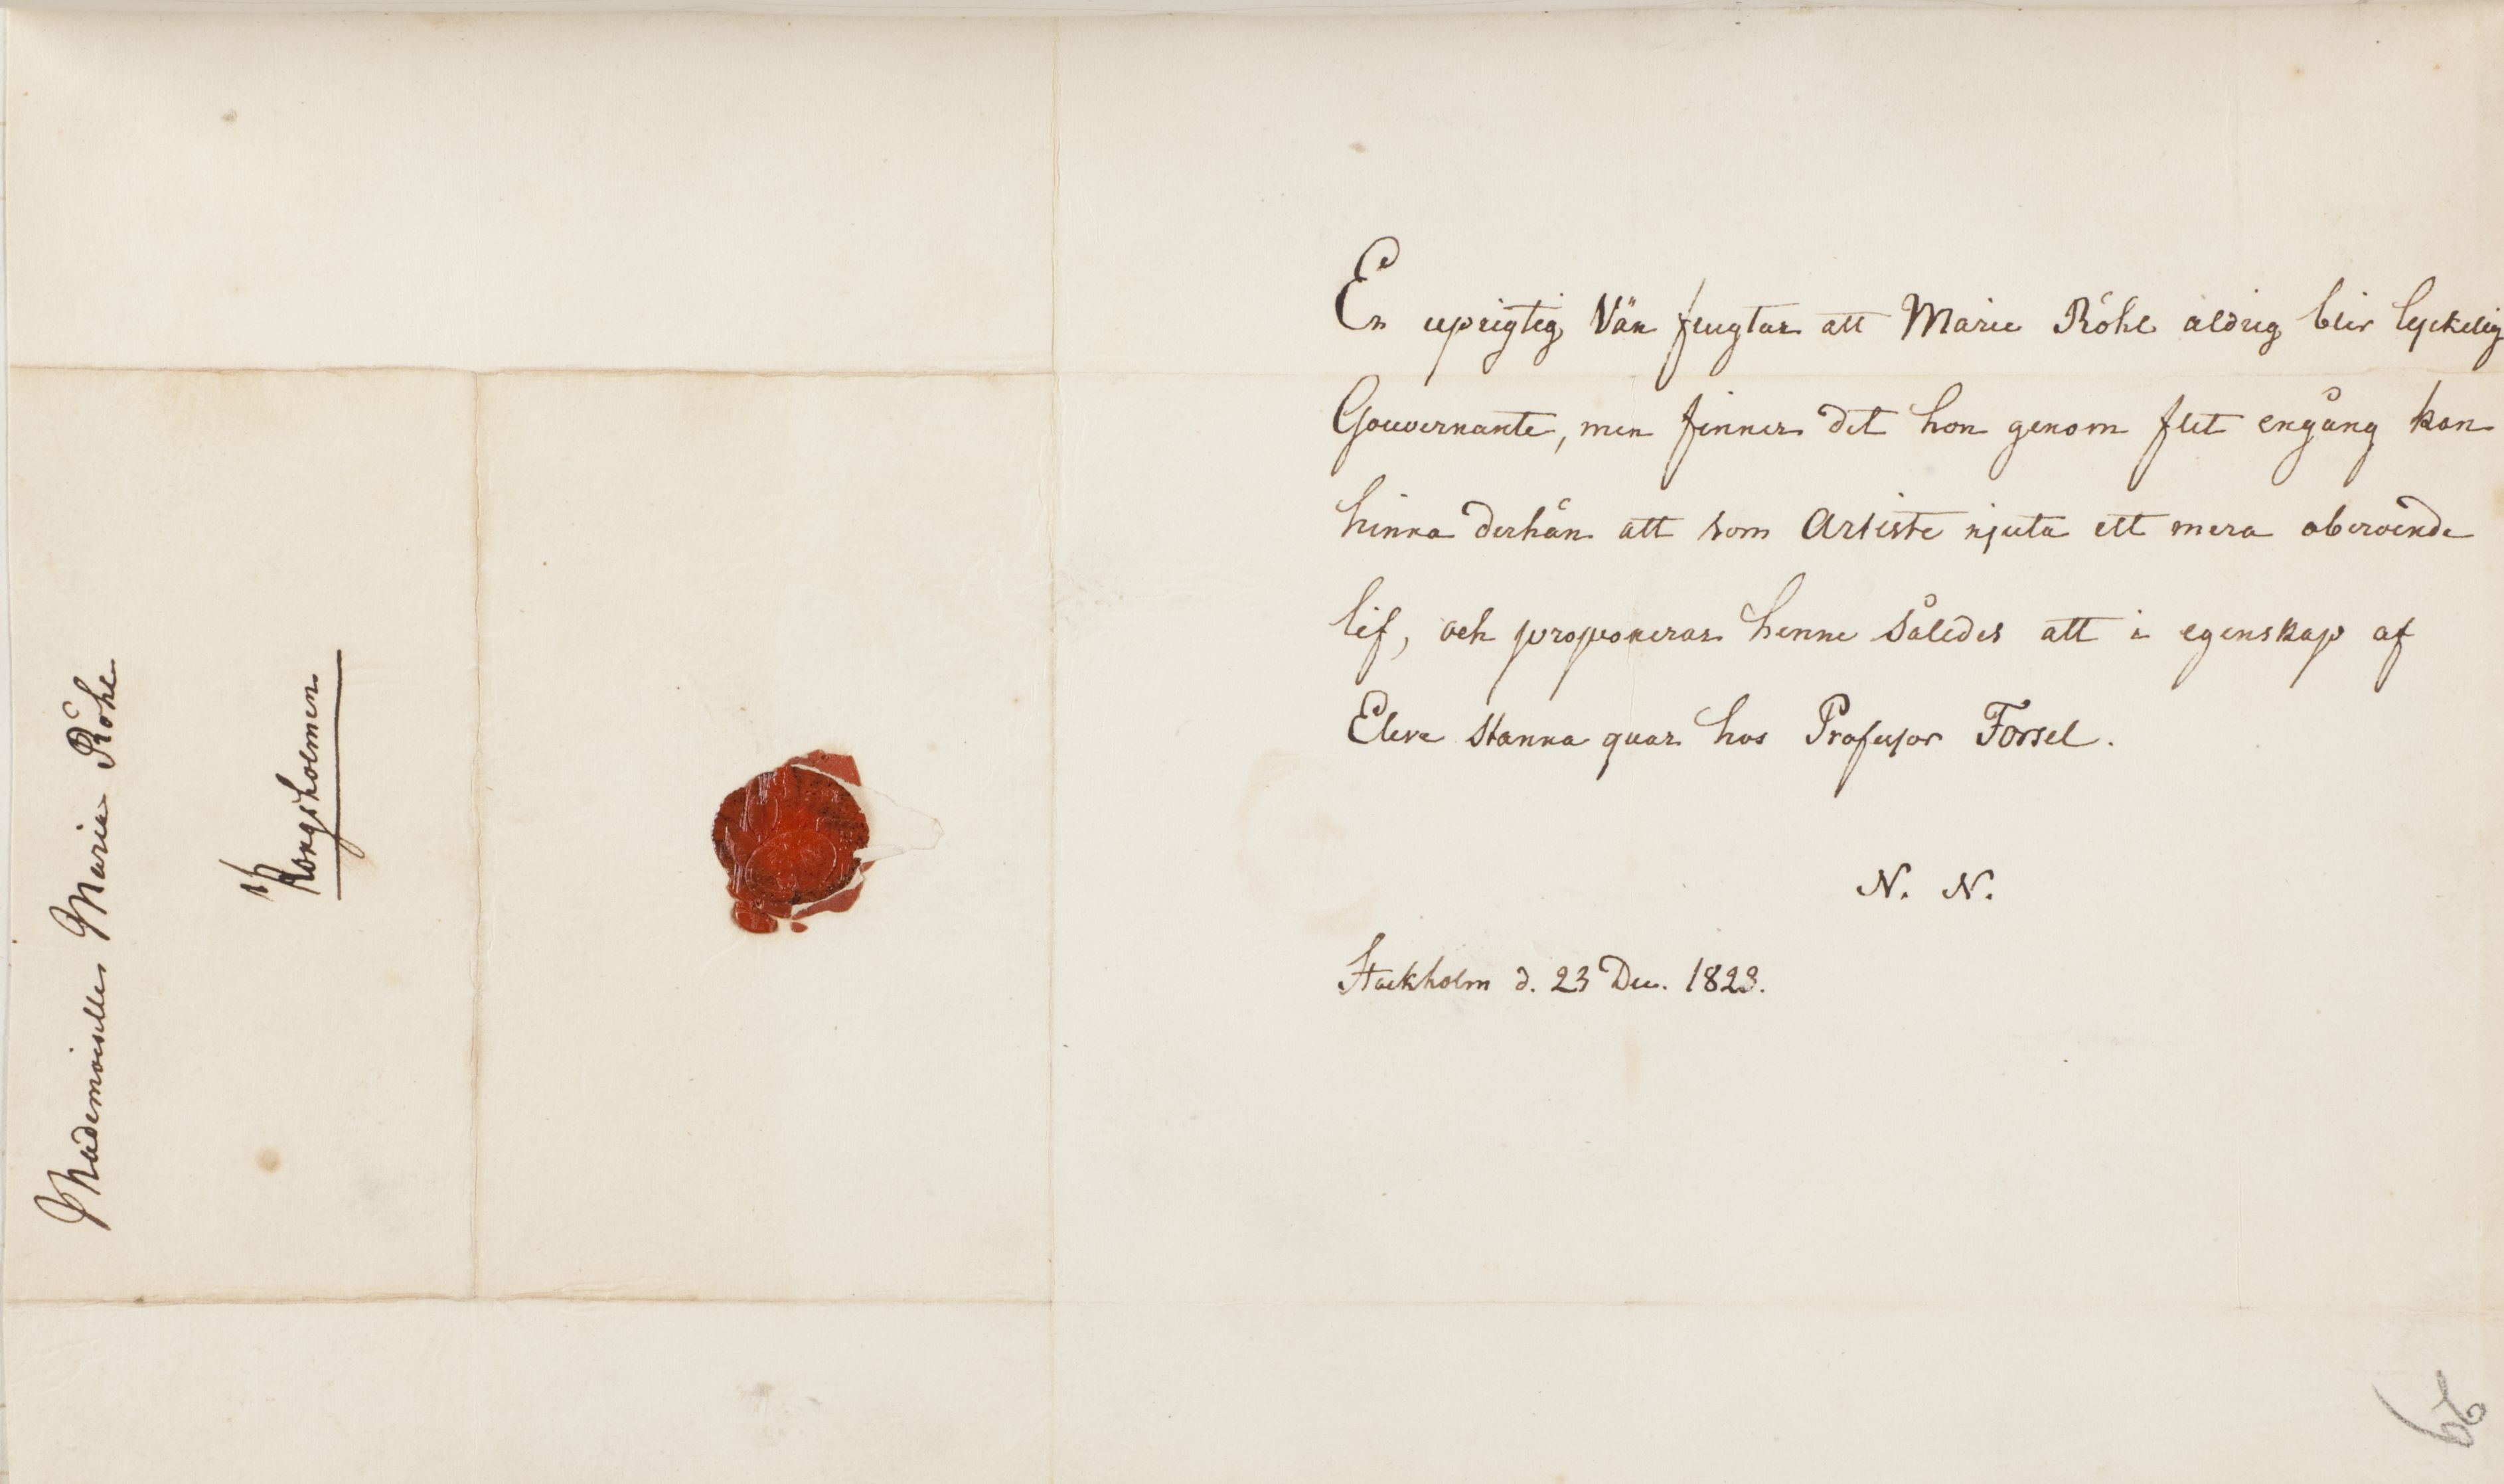 En uprigtig Vän frugtar att Marie Röhl aldrig blir lyckelig
Gouvernante, men finner det hon genom flit engång kan
hinna derhän att som Artiste njuta ett mera oberoende
lif, och proponerar henne således att i egenskap af
Eleve stanna quar hos Professor Forssel.
N. N.
Stockholm d. 23 Dec. 1823.
Mademoiselle Marie Röhl
Kongsholmen